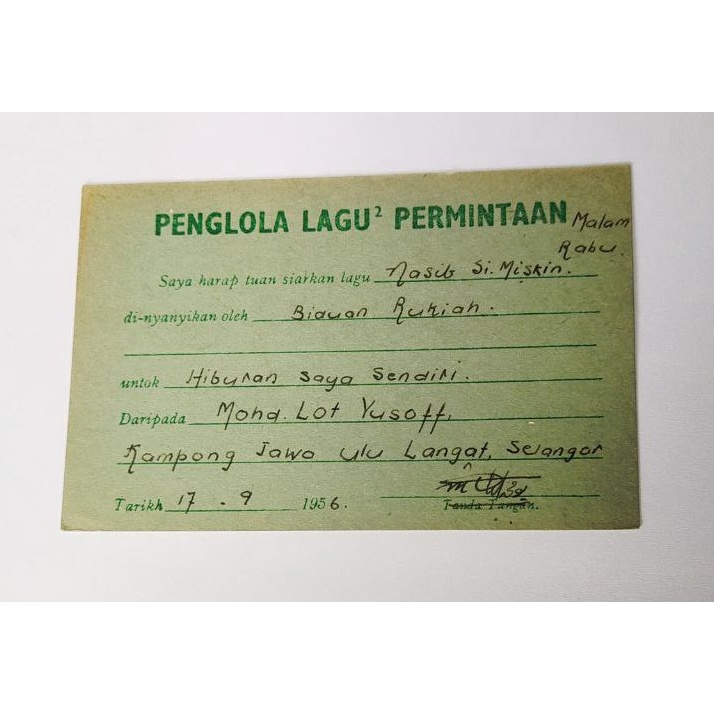 PENGLOLA LAGU² PERMINTAAN Malam
Rabu.
Saya harap tuan siarkan lagu Nasib Si. Miskin.
di-nyanyikan oleh Biduan Rukiah.
untok Hiburan saya sendiri.
Daripada Mohd. Lot Yusoff,
Kampong Jawa Ulu Langat, Selangor
Tarikh 17 - 9 1956.
Tanda Tangan.